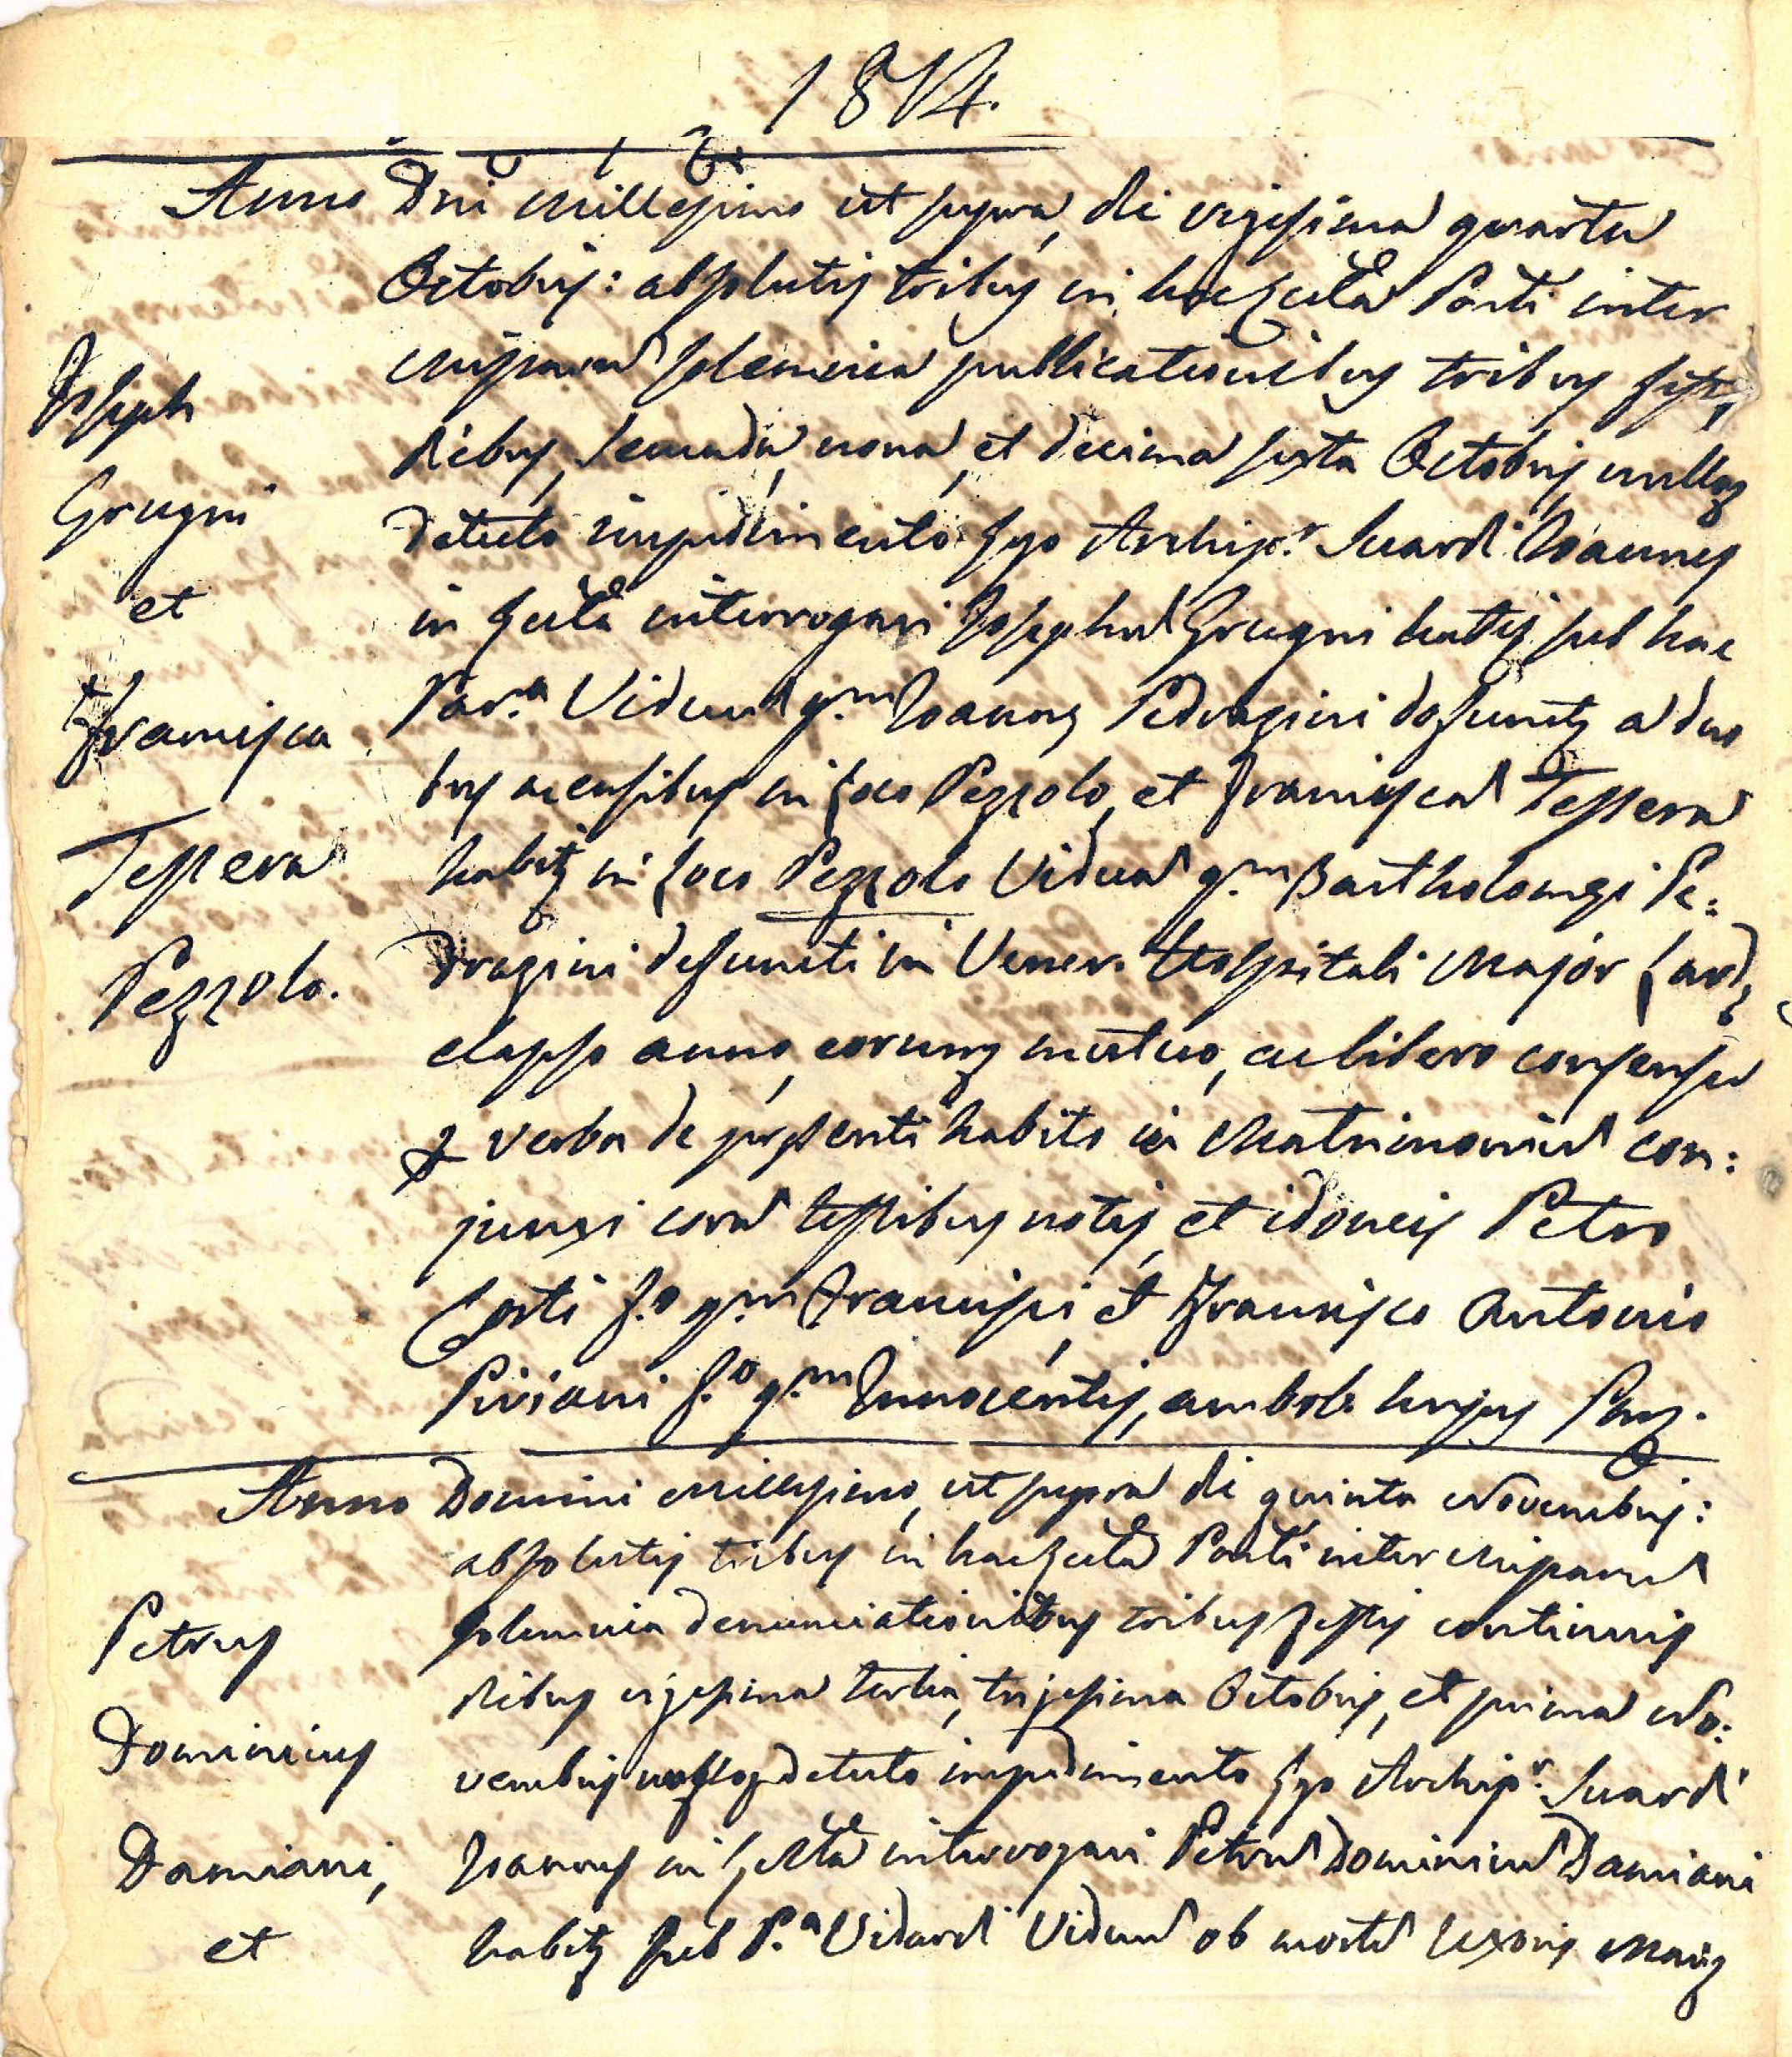 1814.
Anno Dni Millesimo ut supra, die vigesima quarta
Octobris: absolutis tribus in hac Eccla Parli inter
Missarum solemnia publicationibus tribus fest,
diebus, secunda, nona, et decima sexta Octobris nulloq
detecto impedimento Ego Archipr. Suardi Joannes
in Eccla interrogavi Josephum Grugni habit sub hac
Par.a Viduum q.m Joanne Pedrazini defunct a duo
bus mensibus in Loco Pezzolo, et Francisca Tessera
habit in Loco Pezzolo Vidua q.m Bartholomei Pe:
drazini defuncti in Vener. Hospitali Major Laud,
elapso anno, eorumq mutuo, ac libero consensu
p verba de presenti habito in Matrimonium con:
junxi coram testibus notis, et idoneis Petro
Corti f.o q.m Francisci, et Francisco Antonio
Piviani f.o q.m Innocentis, ambob. hujus Par.
Joseph
Grugni
et
Francisca
Tessera
Pezzolo.
Anno Domini Millesimo, ut supra die quinta Novembris:
absolutis tribus in hac Eccla Parli inter Missarum
solemnia denunciationibus tribus festis continuis
diebus vigesima tertia, trigesima Octobris, et prima No:
vembris nulloq detecto impedimento Ego Archipr. Suardi
Joannes in Eccla interrogavi Petrum Dominicum Damiani
habit sub P.a Vidardi Viduum ob mortem Uxoris Mariæ
Petrus
Dominicus
Damiani,
et